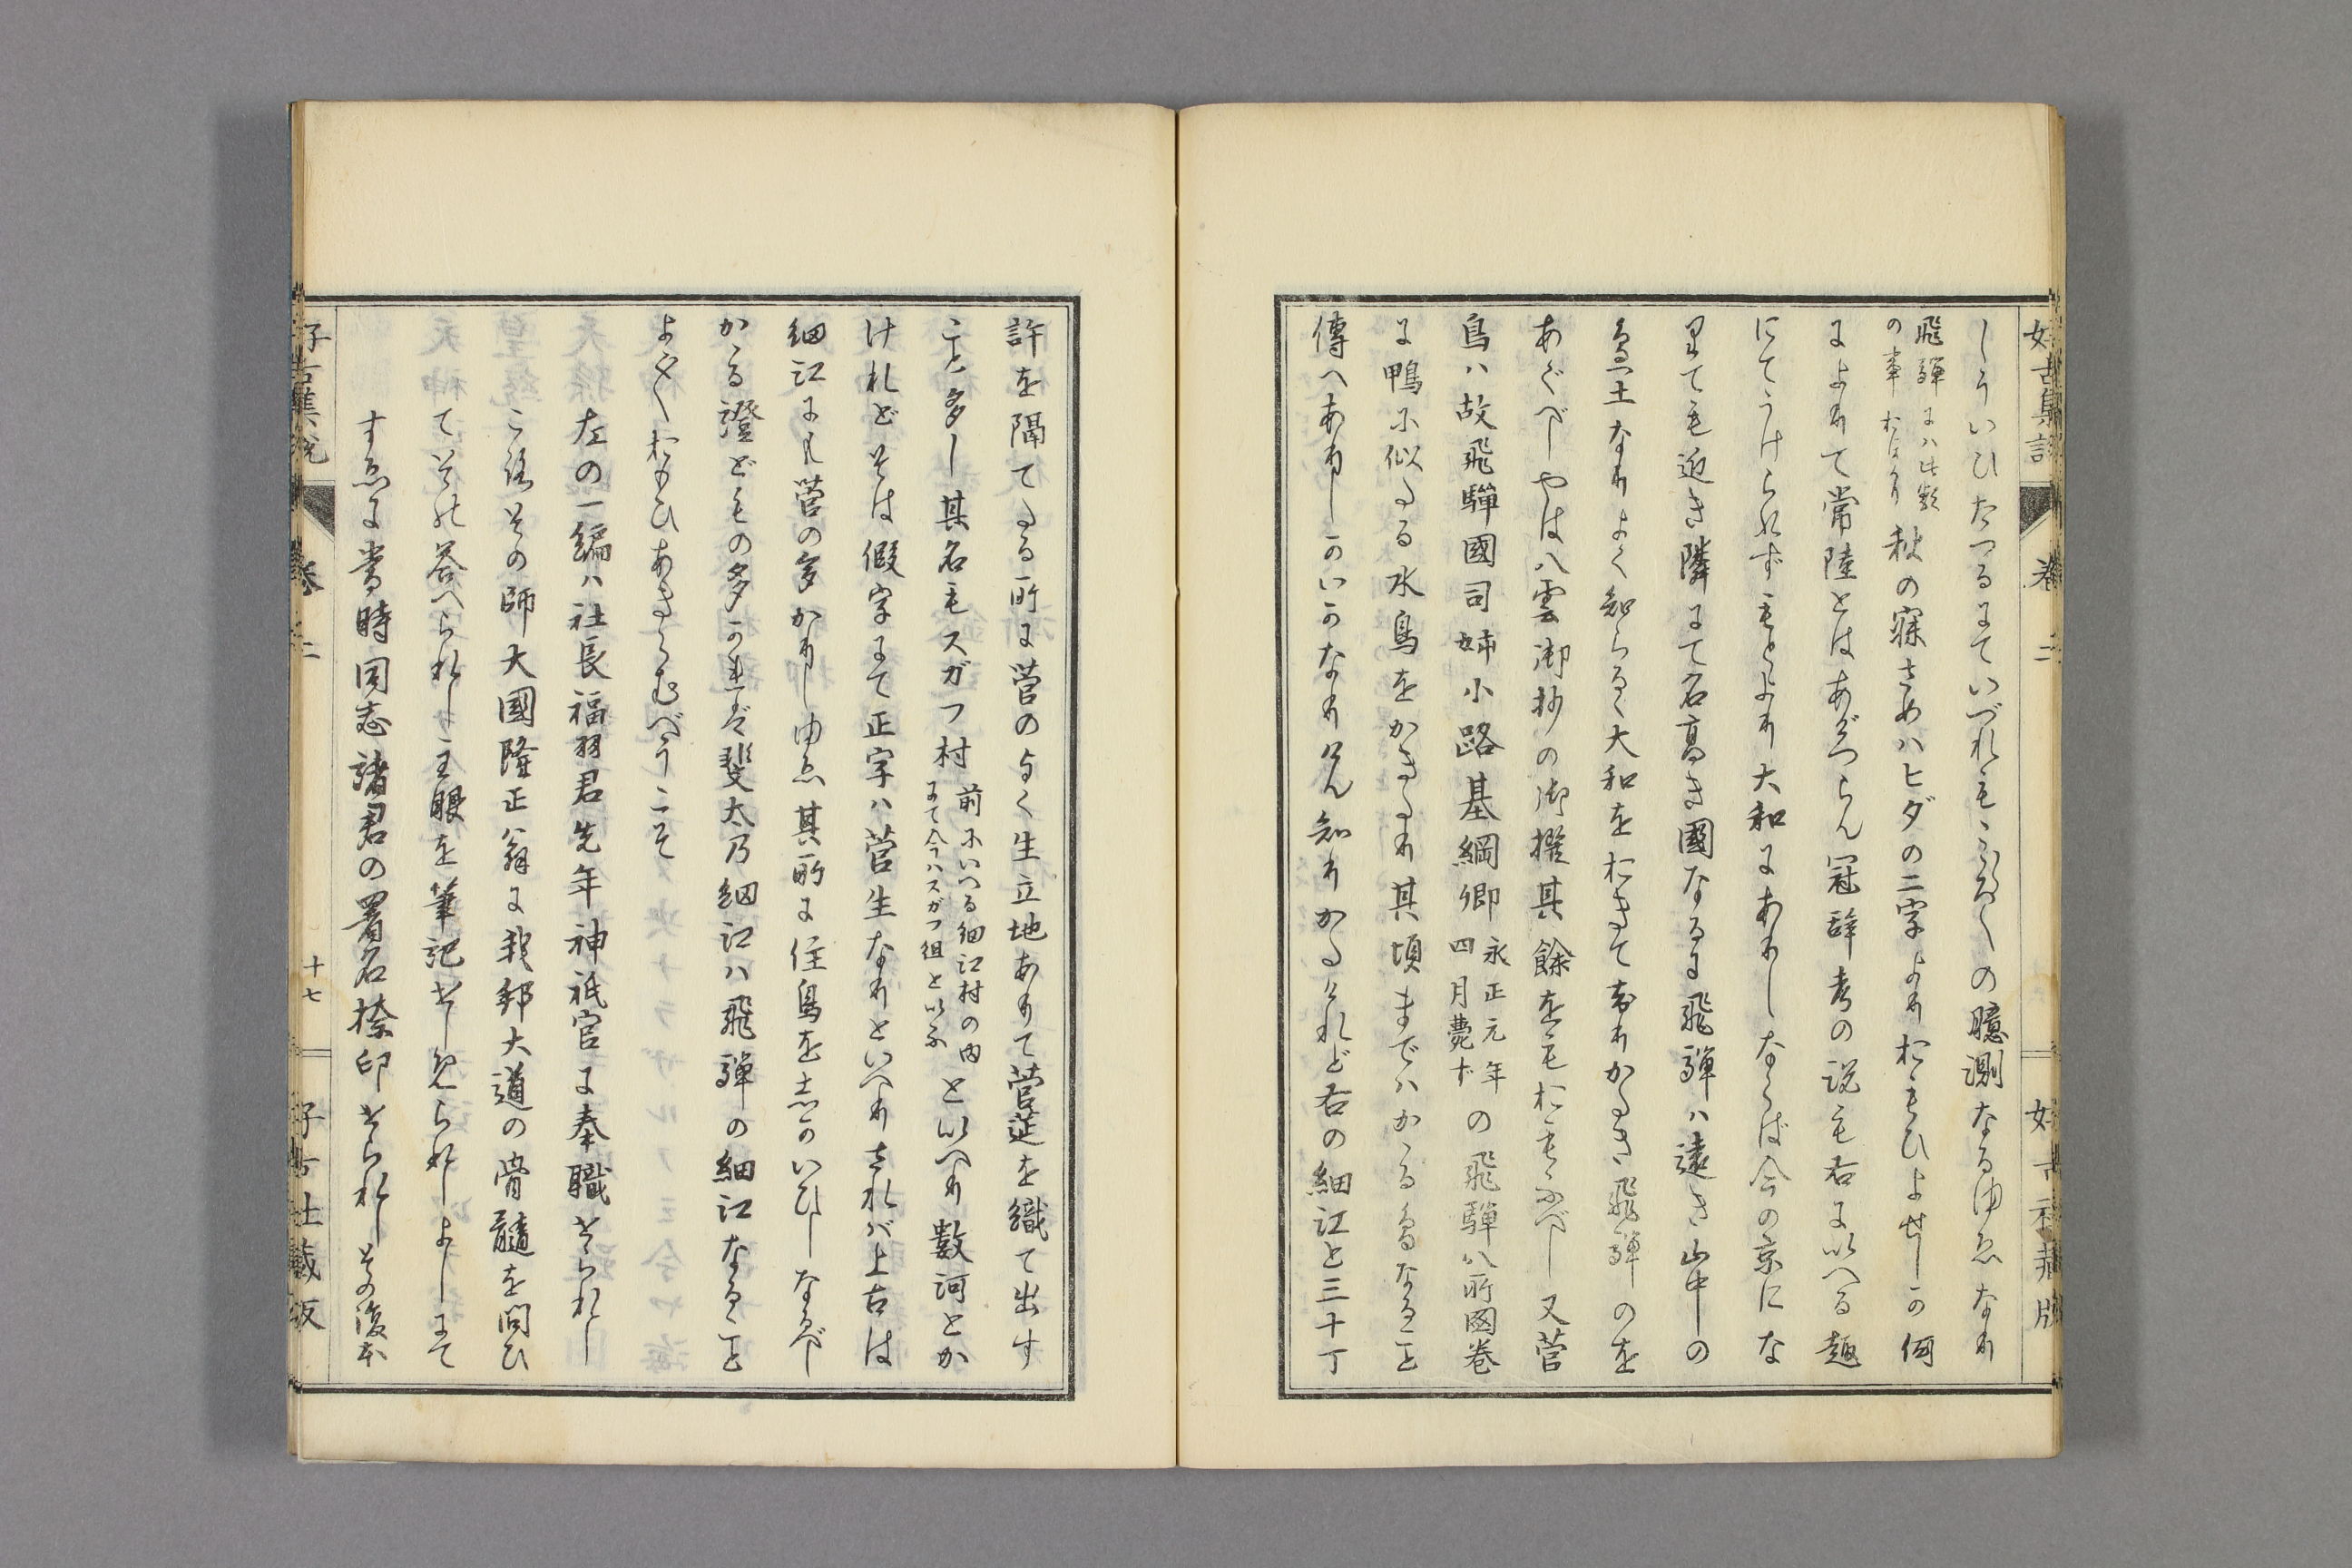 好古集説 卷二 好古社藏版
しういひたつるにていづれもこゝろ〴〵の臆測なるゆゑなり
飛騨にハ此類
の事おほかり
秋の寐さめハヒダの二字よりおもひよせしか何
によりて常陸とはあげつらん冠辞考の説も右にいへる趣
にてうけられずもとより大和にありしならば今の京にな
りても近き隣にて名高き國なるに飛騨ハ遠き山中の
土なりよく知らるゝ大和をおきて知りかたき飛騨のを
あぐべしやは八雲御抄の御撰其餘をもおもふべし又菅
鳥ハ故飛驒國司姉小路基綱卿
永正元年
四月薨ず
の飛驒八所図卷
に鴨に似たる水鳥をかきたり其頃まではかゝる鳥なること
傳へありしかいかなりけん知りかたけれど右の細江と三十丁
許を隔てたる所に菅のよく生立地ありて菅莚を織て出す
こと多し其名もスガフ村
前にいへる細江村の内
にて今ハスガフ組といふ
といへり數河とか
けれどそは假字にて正字ハ菅生なりといへりされバ上古は
細江にも菅の多かりしゆゑ其所に住鳥を志かいひしなるべし
かゝる證どもの多かれバ斐太乃細江ハ飛騨の細江なること
よく〳〵おもひあきらむべうこそ
左の一編ハ社長福羽君先年神祇官に奉職せられし
ころその師大國隆正翁に我邦大道の骨髓を問ひ
てそれ答へられし主眼を筆記せしめられしよしにて
すゑに當時同志諸君の署名捺印せられしその復本
好古集説 卷二 十七 好古社藏版